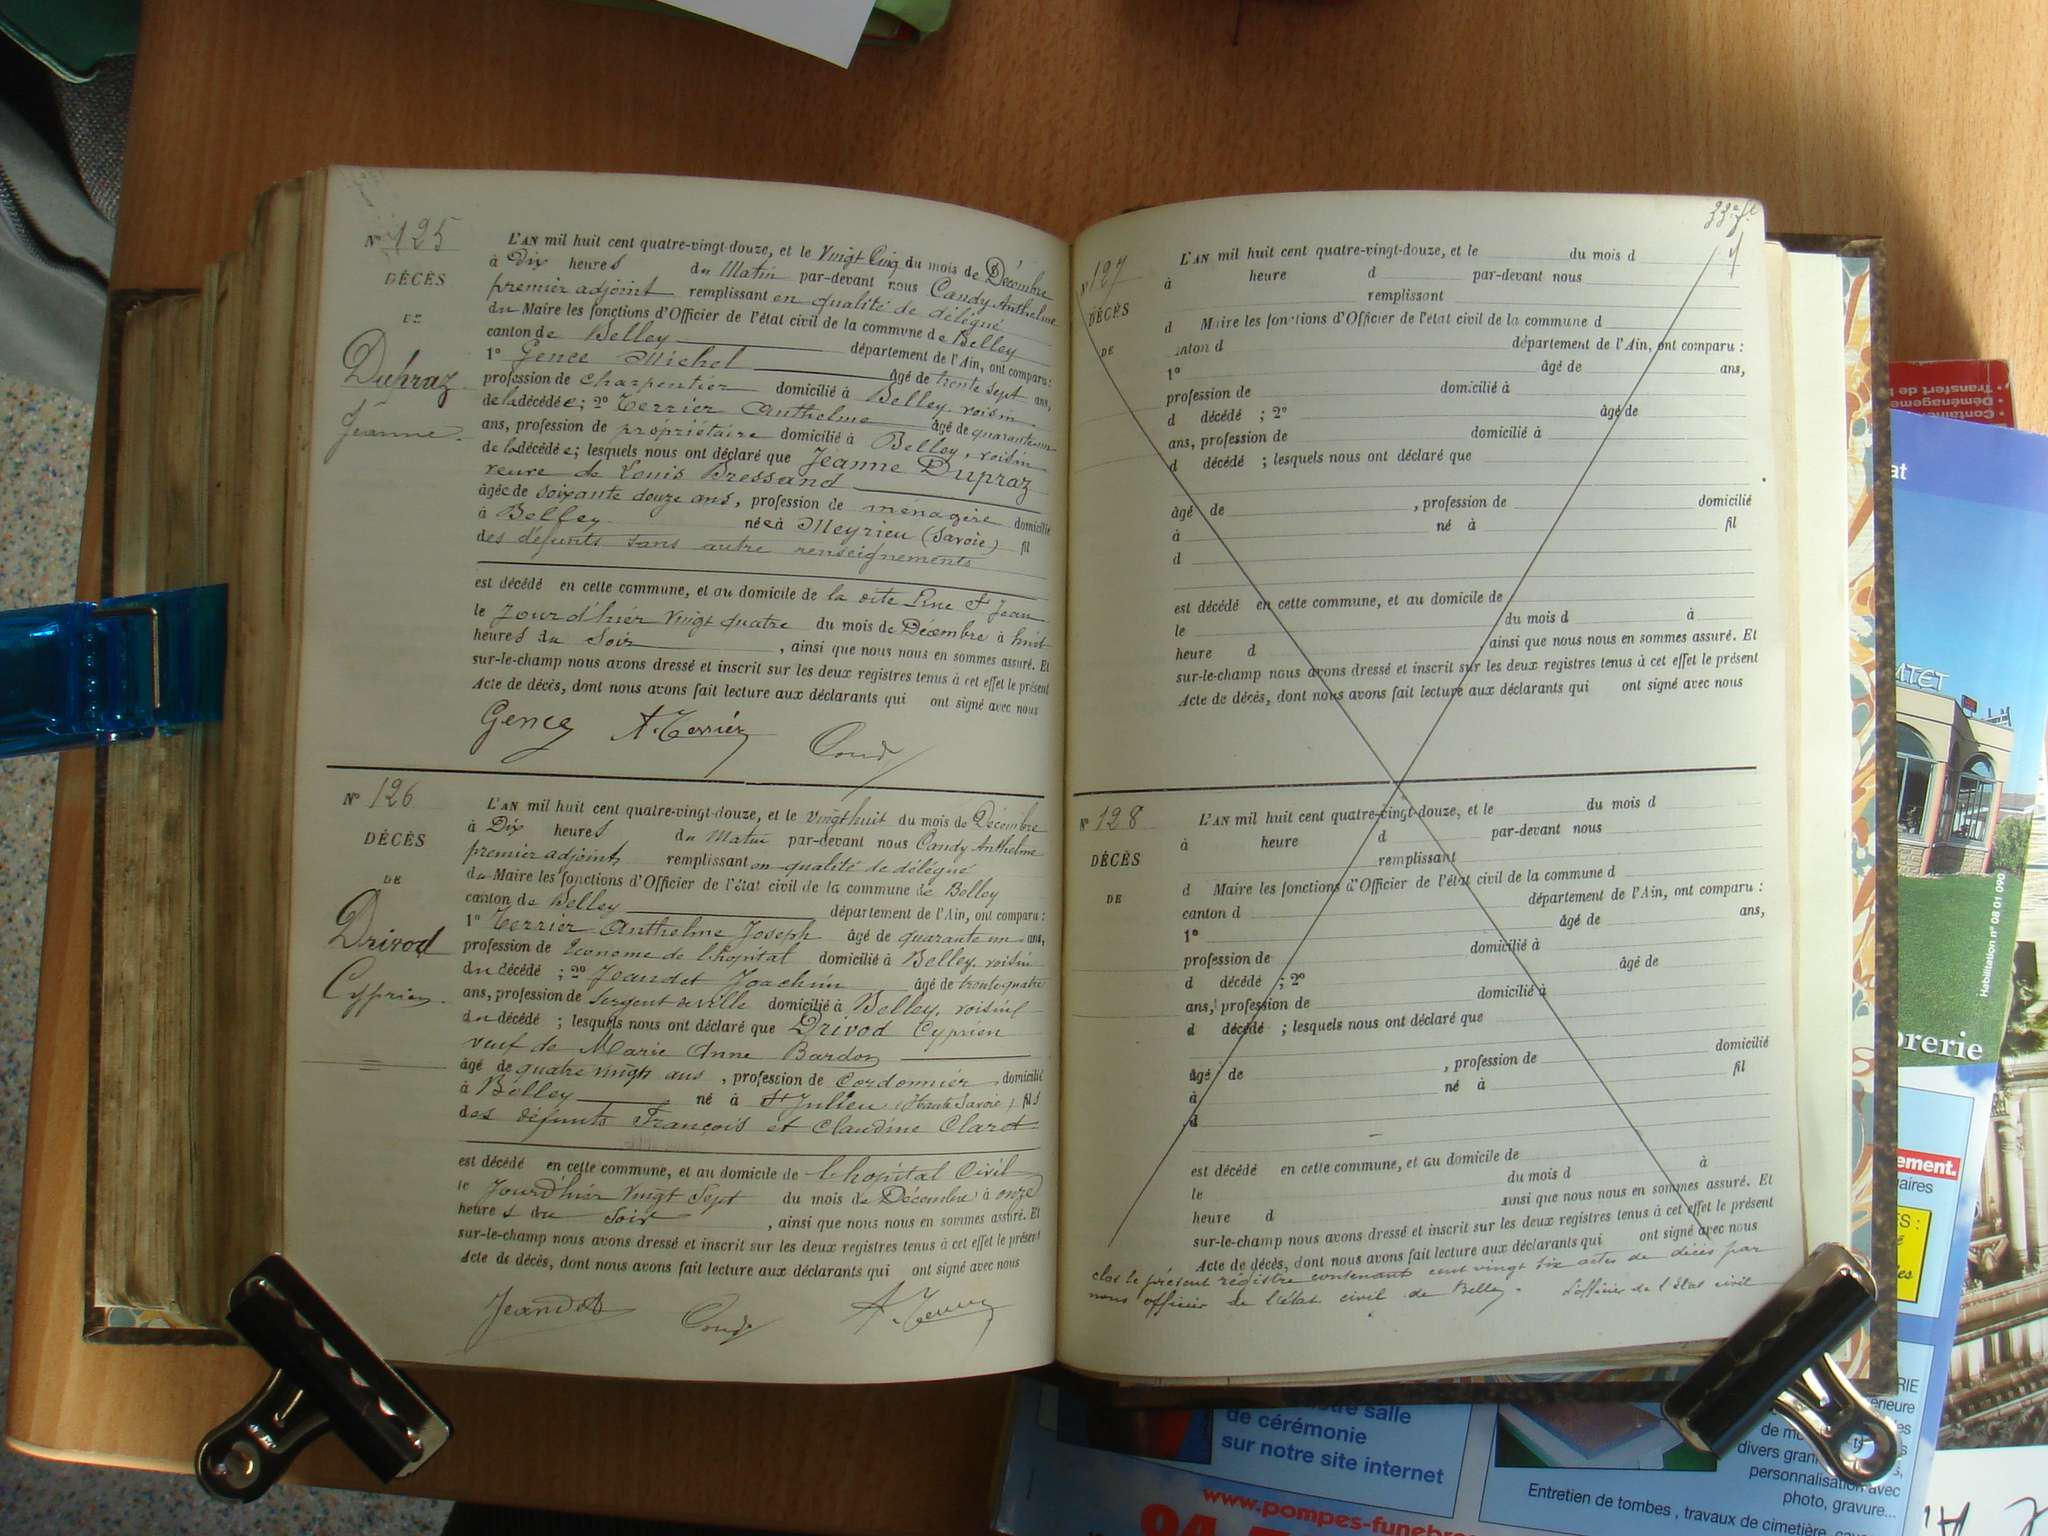 N° 125
DÉCÈS
DE
Dupraz
Jeanne
L'AN mil huit cent quatre-vingt-douze, et le Vingt Cinq du mois de Décembre
à Dix heures du Matin par-devant nous Candy Anthelme
premier adjoint remplissant en qualité de délégué
du Maire les fonctions d'Officier de l'état civil de la commune de Belley
canton de Belley département de l'Ain, ont comparu :
1° Gence Michel âgé de trente sept ans,
profession de charpentier domicilié à Belley, voisin
de la décédée ; 2° Terrier Anthelme âgé de quarante un
ans, profession de propriétaire domicilié à Belley, voisin
de la décédée ; lesquels nous ont déclaré que Jeanne Dupraz
veuve de Louis Bressand
âgée de soixante douze ans, profession de ménagère domicilié
à Belley née à Meyrieu (Savoie) fil
des défunts sans autre renseignements
est décédé en cette commune, et au domicile de la dite Rue St Jean
le Jourd'hier Vingt quatre du mois de Décembre à huit
heures du Soir , ainsi que nous nous en sommes assuré. Et
sur-le-champ nous avons dressé et inscrit sur les deux registres tenus à cet effet le présent
Acte de décès, dont nous avons fait lecture aux déclarants qui ont signé avec nous
Gence A. Terrier Candy
N° 126
DÉCÈS
DE
Drivod
Cyprien
L'AN mil huit cent quatre-vingt-douze, et le vingt huit du mois de Décembre
à Dix heures du Matin par-devant nous Candy Anthelme
premier adjoint remplissant en qualité de délégué
du Maire les fonctions d'Officier de l'état civil de la commune de Belley
canton de Belley département de l'Ain, ont comparu :
1° Terrier Anthelme Joseph âgé de quarante un ans,
profession de Econome de l'hopital domicilié à Belley, voisin
du décédé ; 2° Jeandet Joachim âgé de trente quatre
ans, profession de Sergent de ville domicilié à Belley, voisin
du décédé ; lesquels nous ont déclaré que Drivod Cyprien
veuf de Marie Anne Bardon
âgé de quatre vingt ans , profession de Cordonnier domicilié
à Belley né à St Julien (Haute Savoie) fils
des défunts François et Claudine Clarot
est décédé en cette commune, et au domicile de l'hopital Civil
le Jourd'hier Vingt Sept du mois de Décembre à onze
heures du Soir , ainsi que nous nous en sommes assuré. Et
sur-le-champ nous avons dressé et inscrit sur les deux registres tenus à cet effet le présent
Acte de décès, dont nous avons fait lecture aux déclarants qui ont signé avec nous
Jeandet Candy A. Terrier
N° 127
DÉCÈS
DE
L'AN mil huit cent quatre-vingt-douze, et le du mois d
à heure d par-devant nous
remplissant
d Maire les fonctions d'Officier de l'état civil de la commune d
canton d département de l'Ain, ont comparu :
1° âgé de ans,
profession de domicilié à
d décédé ; 2° âgé de
ans, profession de domicilié à
d décédé ; lesquels nous ont déclaré que
âgé de , profession de domicilié
à né à fil
d
est décédé en cette commune, et au domicile de
le du mois d à
heure d ainsi que nous nous en sommes assuré. Et
sur-le-champ nous avons dressé et inscrit sur les deux registres tenus à cet effet le présent
Acte de décès, dont nous avons fait lecture aux déclarants qui ont signé avec nous
N° 128
DÉCÈS
DE
L'AN mil huit cent quatre-vingt-douze, et le du mois d
à heure d par-devant nous
remplissant
d Maire les fonctions d'Officier de l'état civil de la commune d
canton d département de l'Ain, ont comparu :
1° âgé de ans,
profession de domicilié à
d décédé ; 2° âgé de
ans, profession de domicilié à
d décédé ; lesquels nous ont déclaré que
âgé de , profession de domicilié
à né à fil
d
est décédé en cette commune, et au domicile de
le du mois d à
heure d ainsi que nous nous en sommes assuré. Et
sur-le-champ nous avons dressé et inscrit sur les deux registres tenus à cet effet le présent
Acte de décès, dont nous avons fait lecture aux déclarants qui ont signé avec nous
clos le présent registre contenant cent vingt six actes de décès par
nous officier de l'état civil de Belley. L'officier de l'état civil
Transfert de
Déménageme
Containe
at
Habilitation n° 08 01 090
brerie
ement.
uaires
otre salle
de cérémonie
sur notre site internet
www.pompes-funebre
RIE
érieure
de mo
divers grani
personnalisation avec
photo, gravure...
Entretien de tombes , travaux de cimetière, cave